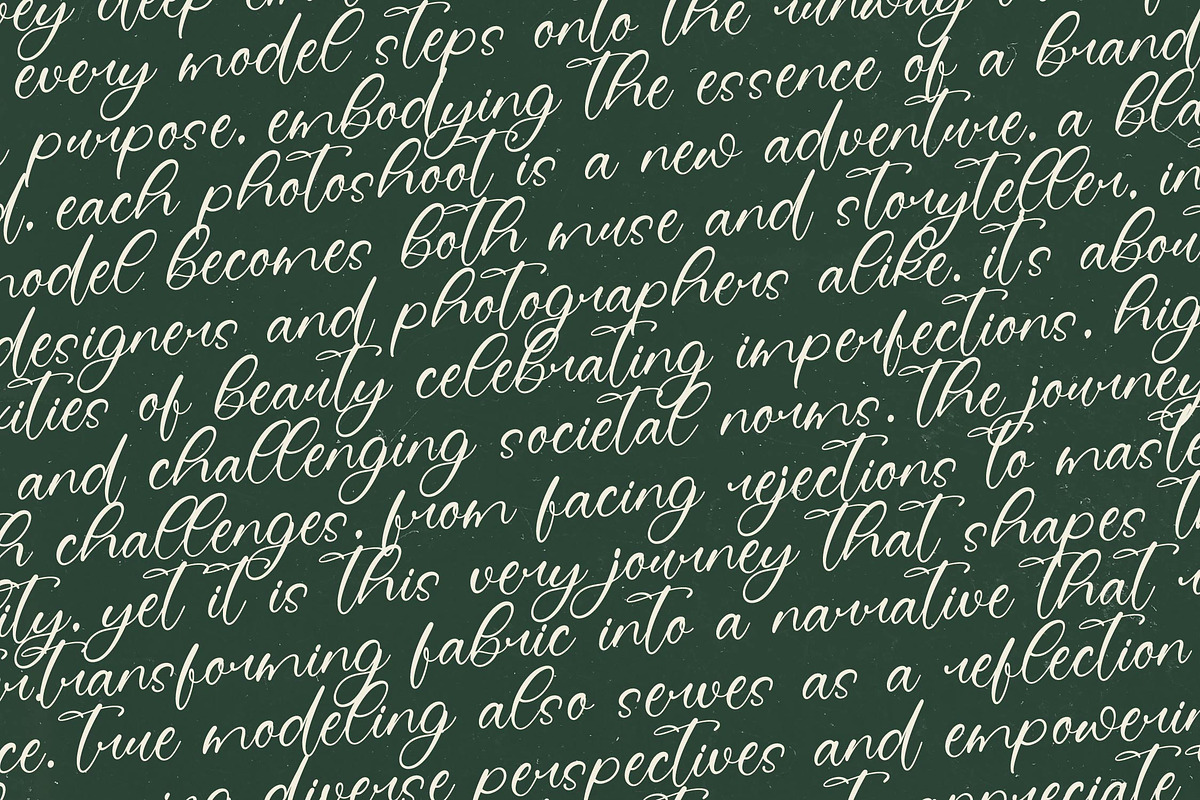 deep
every model steps onto the runway
purpose. embodying the essence of a brand
d. each photoshoot is a new adventure. a bla
model becomes both muse and storyteller. in
designers and photographers alike. it's abou
xities of beauty celebrating imperfections. hig
and challenging societal norms. the journey
h challenges. from facing rejections to maste
ity. yet it is this very journey that shapes t
r. transforming fabric into a narrative that
ce. true modeling also serves as a reflection
ing diverse perspectives and empowerin
appreciate